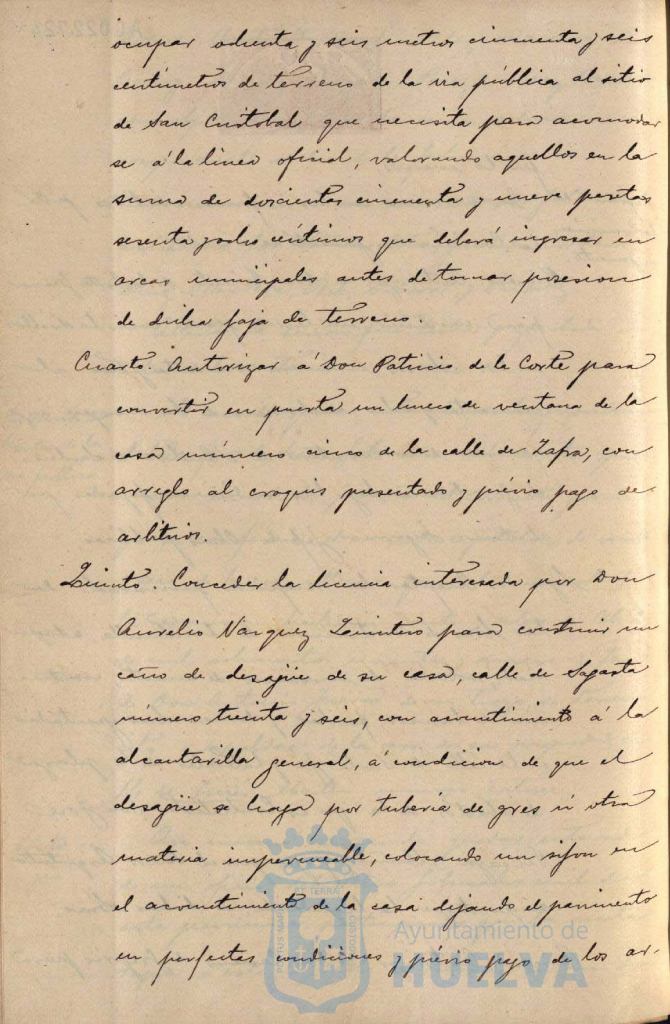 ocupar ochenta y seis metros cincuenta y seis
centimetros de terreno de la via pública al sitio
de San Cristobal que necesita para acomodar
se á la linea oficial, valorando aquellos en la
suma de doscientas cincuenta y nueve pesetas
sesenta y ocho centimos que deberá ingresar en
arcas municipales antes de tomar posesion
de dicha faja de terreno.
Cuarto. Autorizar á Don Patricio de la Corte para
convertir en puerta un hueco de ventana de la
casa número cinco de la calle de Zafra, con
arreglo al croquis presentado y prévio pago de
arbitrios.
Quinto. Conceder la licencia interesada por Don
Aurelio Vazquez Quintero para construir un
caño de desagüe de su casa, calle de Sagasta
número treinta y seis, con acometimiento á la
alcantarilla general, á condicion de que el
desagüe se haga por tuberia de gres ú otra
materia impermeable, colocando un sifon en
el acometimiento de la casa dejando el pavimento
en perfectas condiciones y prévio pago de los ar-
Ayuntamiento de
HUELVA